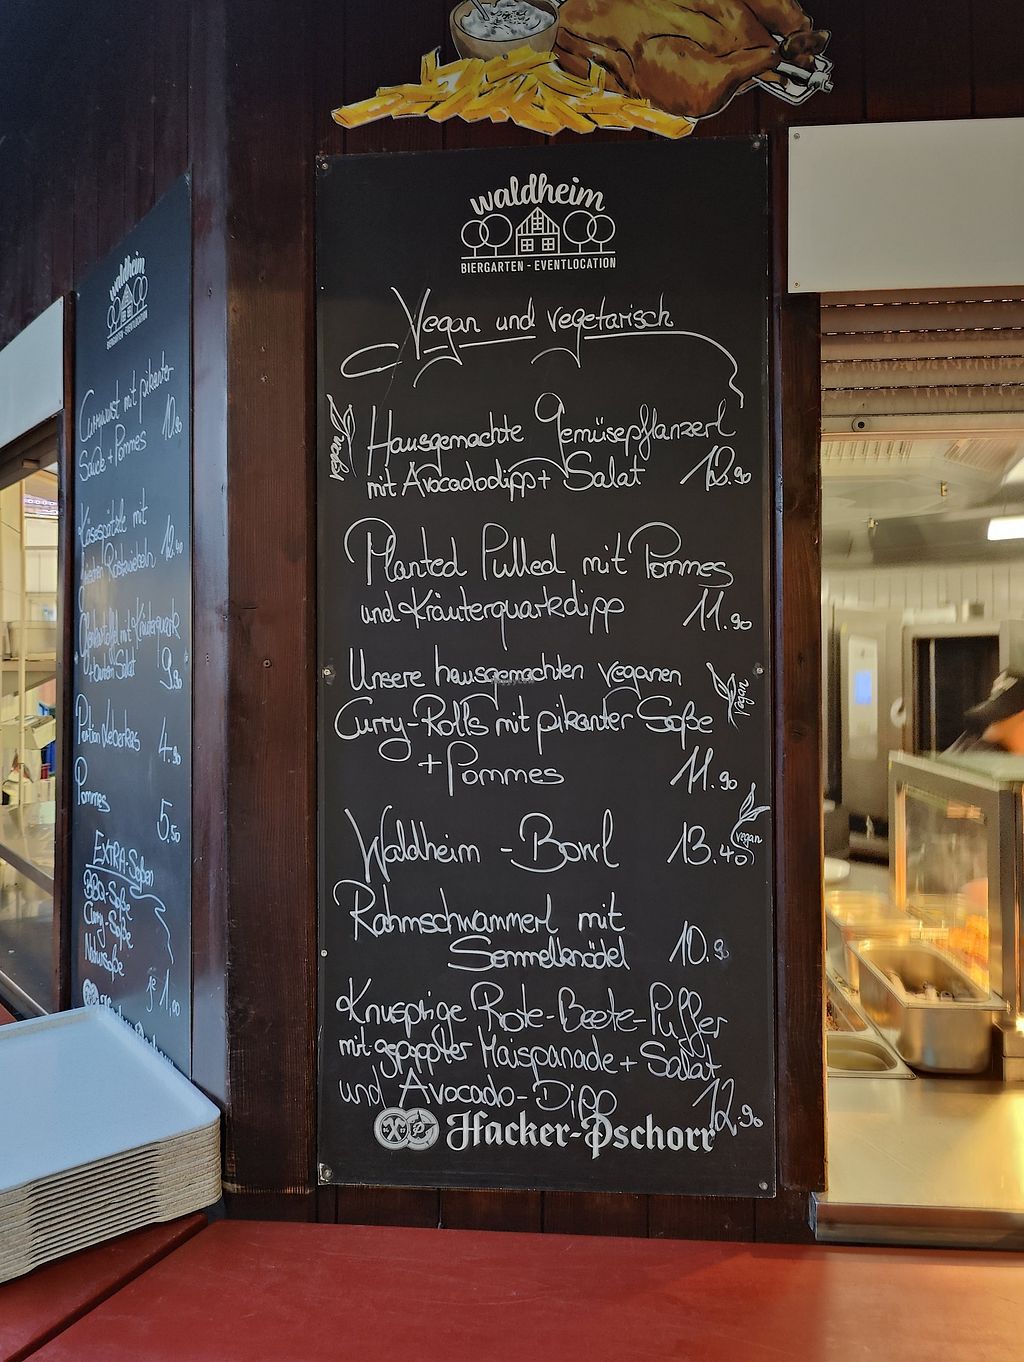 waldheim
BIERGARTEN - EVENTLOCATION
Currywurst mit pikanter
Sauce + Pommes
10.90
Käsespätzle mit
Röstzwiebeln
12.40
Ofenkartoffel mit Kräuterquark
+ Salat
9.90
Portion Leberkäs
4.90
Pommes
5.50
EXTRA-Soßen
BBQ-Soße
Curry-Soße
je 1,00
waldheim
BIERGARTEN - EVENTLOCATION
Vegan und vegetarisch
vegan
Hausgemachte Gemüsepflanzerl
mit Avocadodipp + Salat 12.90
Planted Pulled mit Pommes
und Kräuterquarkdipp 11.90
Unsere hausgemachten veganen
vegan
Curry-Rolls mit pikanter Soße
+ Pommes 11.90
Waldheim - Bowl 13.40
vegan
Rahmschwammerl mit
Semmelknödel 10.90
Knusprige Rote-Beete-Puffer
mit gepoppter Maispanade + Salat
und Avocado-Dipp 12.90
Hacker-Pschorr